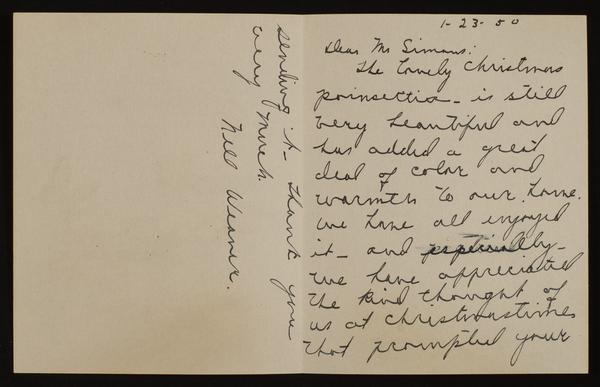 1-23-50
Dear Mr Simons:
The lovely Christmas
poinsectia - is still
very beautiful and
has added a great
deal of color and
warmth to our home.
we have all enjoyed
it - and especially -
we have appreciated
the kind thought of
us at Christmastimes
that prompted your
sending it - thank you
very much.
Nell Weaver.